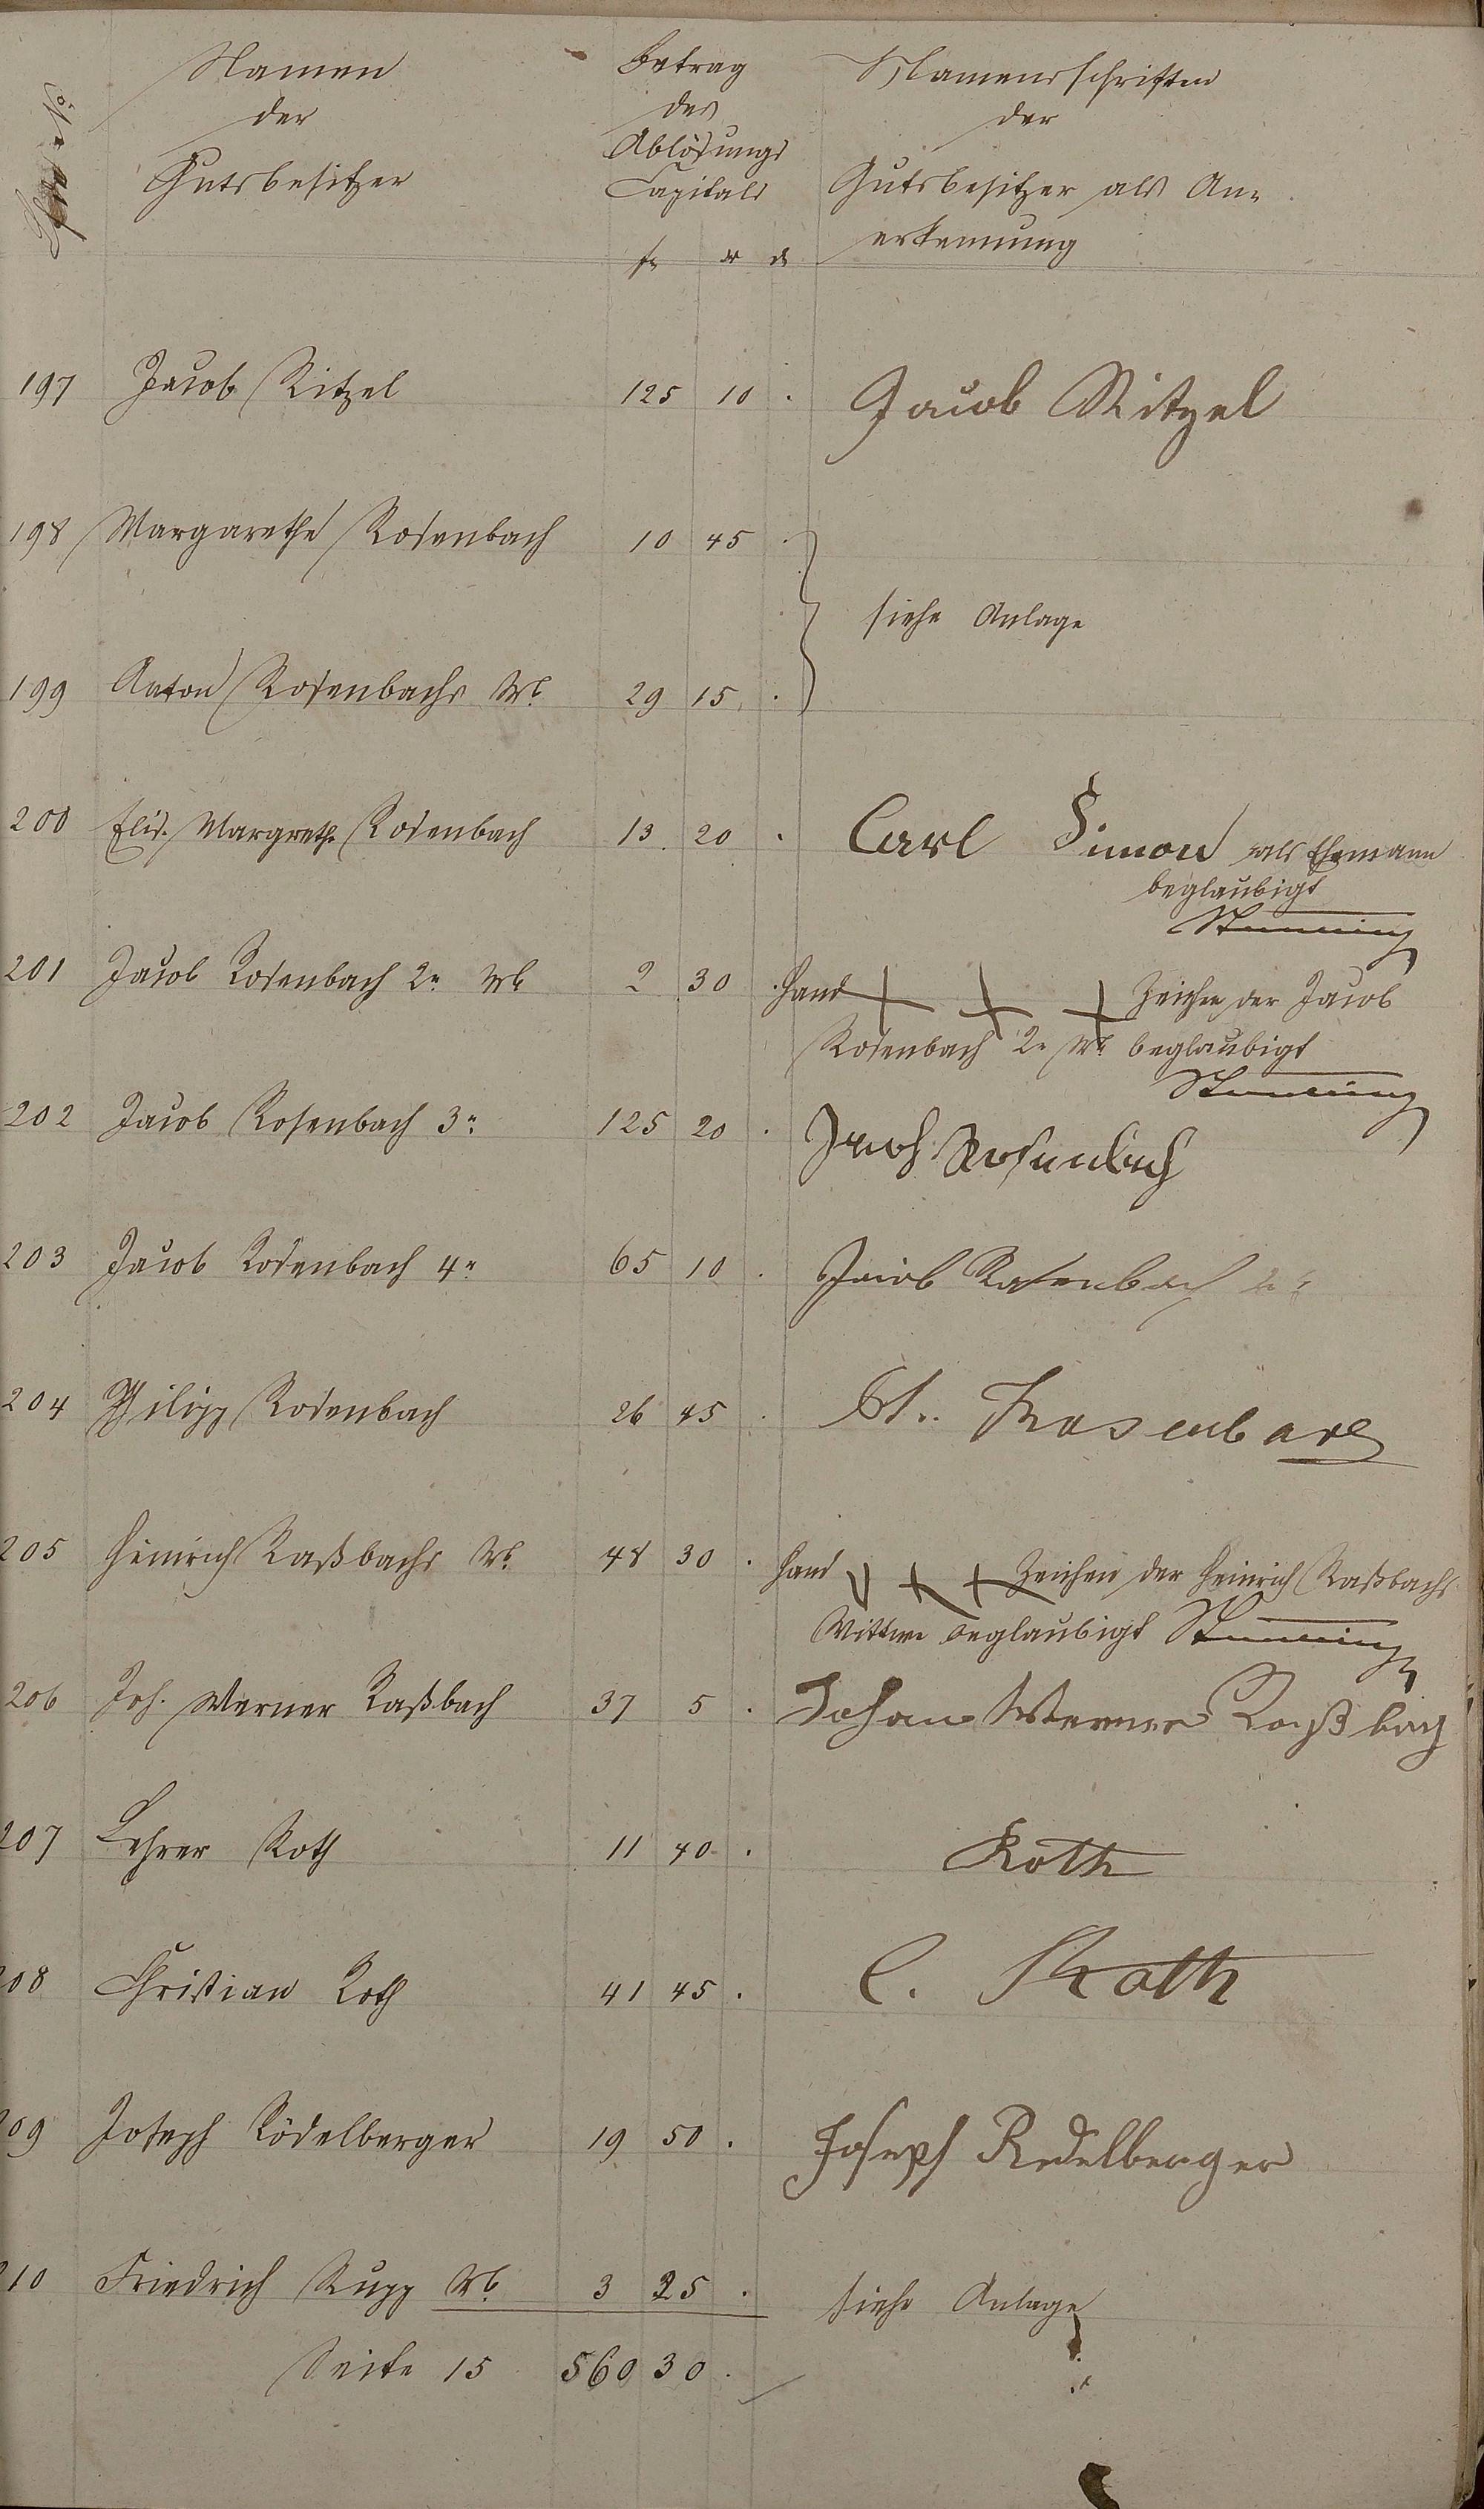 Namen
der
Gutsbesitzer
Betrag
des
Ablösungs
Capitals
fl x d
Namensschriften
der
Gutsbesitzer als An-
erkennung
197 Jacob Ritzel 125 10 . Jacob Ritzel
198 Margarethe Rosenbach 10 45 .
siehe Anlage
199 Anton Rosenbachs Wb. 29 15 .
200 Elis. Margrethe Rosenbach 13 20 . Carl Simon als Ehemann
beglaubigt
201 Jacob Rosenbach 2r Wb 2 30 . Hand + + + Zeichen der Jacob
Rosenbach 2r Wb beglaubigt
202 Jacob Rosenbach 3r 125 20 . Jacob Rosenbach
203 Jacob Rosenbach 4r 65 10 . Jacob Rosenbach
204 Philipp Rosenbach 26 45 . Rosenbach
205 Heinrich Raßbachs Wb. 48 30 . Hand + + + Zeichen der Heinrich Raßbachs
Wittwe beglaubigt
206 Joh. Werner Raßbach 37 5 . Johann Werner Raßbach
207 Lehrer Roth 11 40 . Roth
208 Christian Roth 41 45 . C. Roth
209 Joseph Rödelberger 19 50 . Joseph Redelberger
210 Friedrich Rupp Wb. 3 25 . siehe Anlage
Seite 15 560 30 .